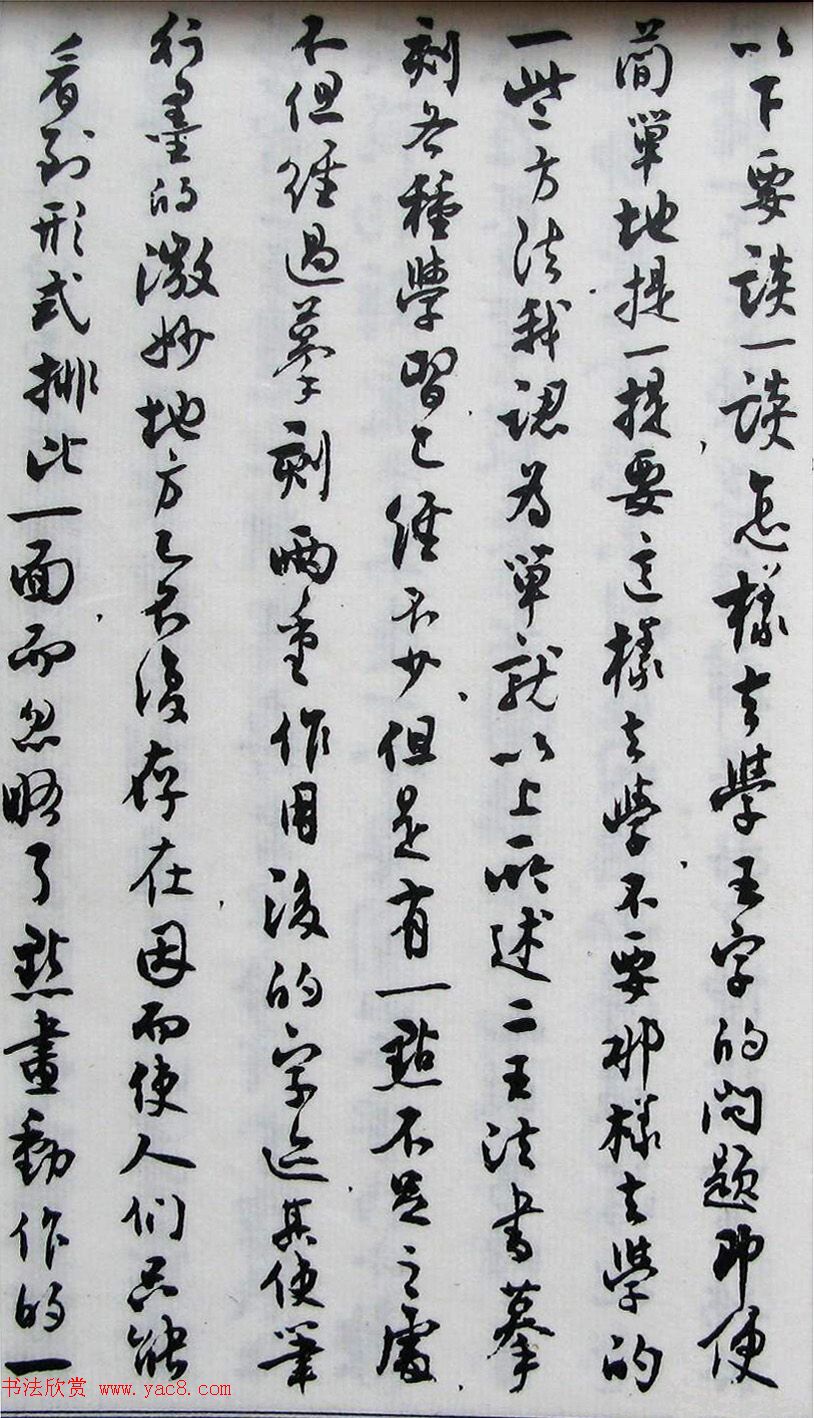 以下要談一談怎樣去學王字的問題即便
簡單地提一提、要這樣去學、不要那樣去學的
一些方法、我認為單就以上所述二王法書摹
刻各種學習已經不少、但是有一點不足之處、
不但經過摹刻兩重作用後的字迹、其使筆
行墨的微妙地方已不復存在、因而使人們只能
看到形式排比一面、而忽略了點畫動作的一
书法欣赏 www.yac8.com